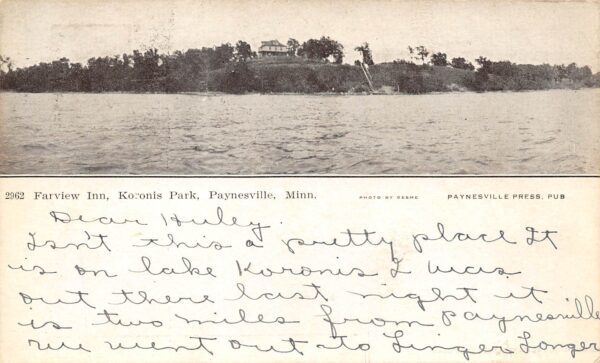 2962 Farview Inn, Koronis Park, Paynesville, Minn. PHOTO BY REEME PAYNESVILLE PRESS. PUB
Dear Huley.
Isn't this a pretty place It
is on lake Koronis I was
out there last night it
is two miles from Paynesville
we went out to Linger Longer